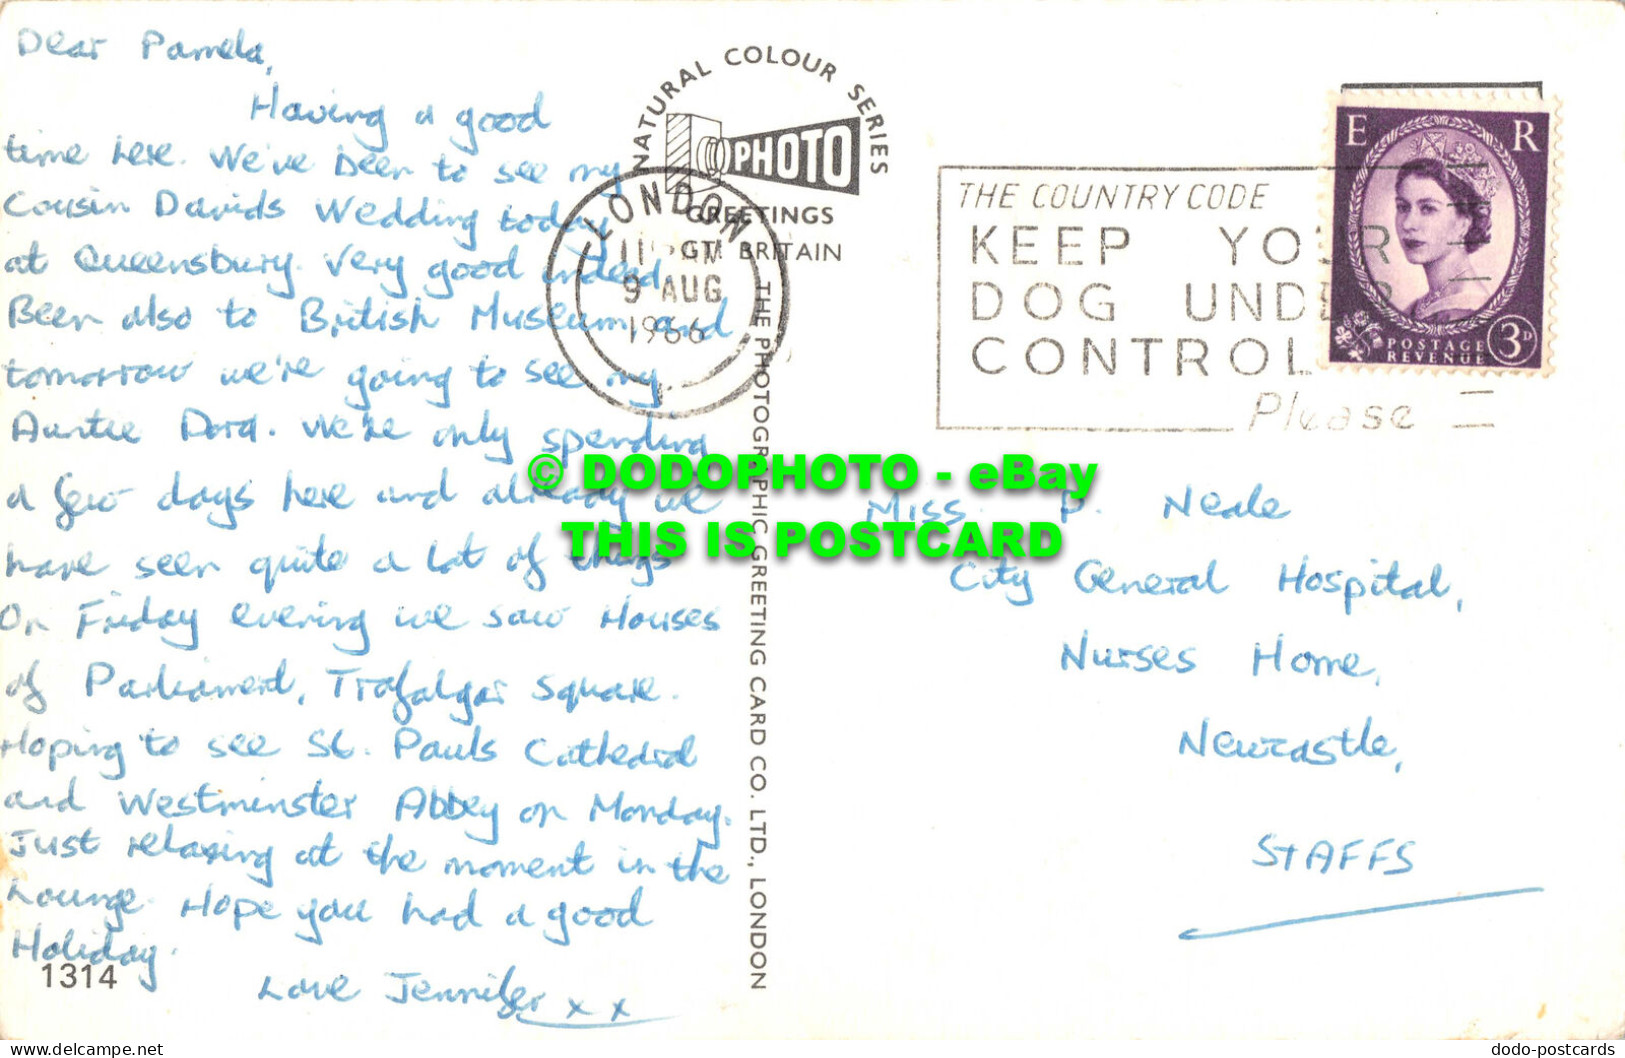 Dear Pamela,
Having a good
time here. We've been to see my
Cousin Davids Wedding today
at Queensbury. Very good indeed.
Been also to British Museum, and
tomorrow we're going to see my
Auntie Dora. We're only spending
a few days here and already we
have seen quite a lot of things
On Friday evening we saw Houses
of Parliament, Trafalgar Square.
Hoping to see St. Pauls Cathedral
and Westminster Abbey on Monday.
Just relaxing at the moment in the
Lounge. Hope you had a good
Holiday.
Love Jennifer x x
1314
NATURAL COLOUR SERIES
PHOTO
GREETINGS
GT. BRITAIN
THE PHOTOGRAPHIC GREETING CARD CO. LTD., LONDON
LONDON
9 AUG
1966
THE COUNTRY CODE
KEEP YOUR
DOG UNDER
CONTROL
Please
E R
POSTAGE
REVENUE
3D
© DODOPHOTO - eBay
THIS IS POSTCARD
Miss. P. Neale
City General Hospital,
Nurses Home,
Newcastle,
STAFFS
www.delcampe.net
dodo-postcards